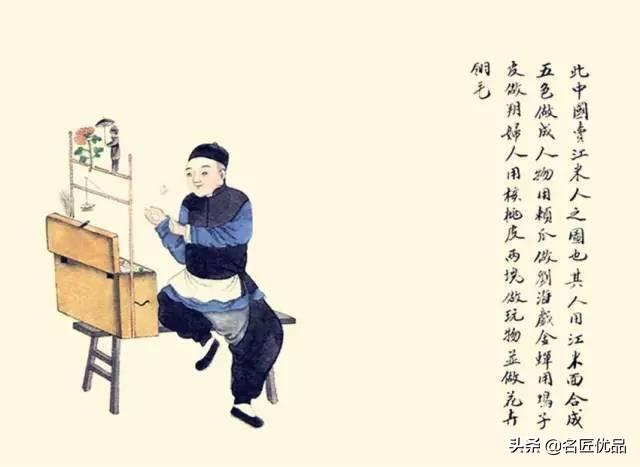 此中國賣江米人之圖也其人用江米面合成
五色做成人物用賴瓜做劉海戲金蟬用子
皮做婦人用核桃皮兩塊做玩物並做花卉
翎毛
头条 @名匠优品